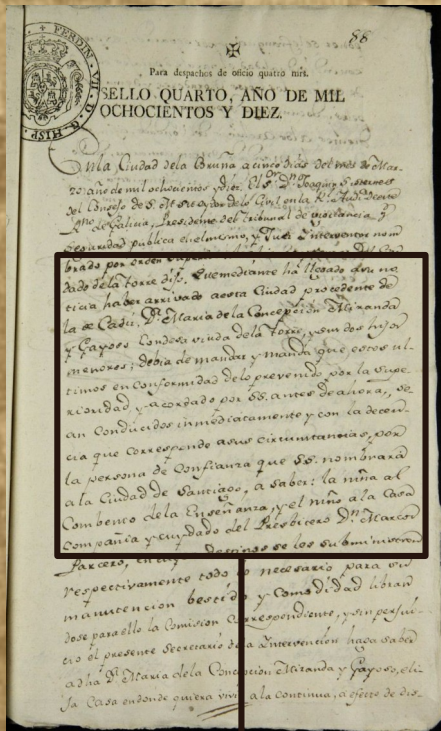 58
FERDIN. VII. D. G. HISP.
Para despachos de oficio quatro mrs.
SELLO QUARTO, AÑO DE MIL
OCHOCIENTOS Y DIEZ.
En la Ciudad dela Bruña acinco dias del mes de Mar-
zo año de mil ochocientos y diez. El Sor. Dn. Joaquin
del Consejo de S. M. su oydor delo Civil en la Rl. Audiencia
de Galicia, Presidente del tribunal de vigilancia y
seguridad publica en el mismo, y Juez Interventor nom
brado por orden
dado dela torre dijo: Que mediante há llegado asu no
ticia haber arrivado aesta Ciudad procedente de
la de Cadiz, Da. Maria dela Concepcion Miranda
y Gayoso Condesa viuda dela torre, y sus dos hijos
menores; debia de mandar y manda que estos ul-
timos en conformidad delo prevenido por la Supe-
rioridad y acordado por SS. antes de ahora, se-
an conducidos inmediatamente y con la decen-
cia que corresponde asus circunstancias, por
la persona de confianza que SS. nombrara
ala Ciudad de Santiago, a saber: la niña al
Combento dela Enseñanza, y el niño ala Casa
Compañia y cuydado del Presbitero Dn. Marcos
Parcero, en cuyos Destinos se los subministren
respectivamente todo lo necesario para su
manutencion bestido y comodidad libran
dose para ello la Comision Correspondiente, y sin perjui-
cio el presente Secretario dela Intervencion haga saber
adha Da. Maria dela Concepcion Miranda y Gayoso, eli-
ja Casa endonde quiera vivir ala continua, a efecto de dis-